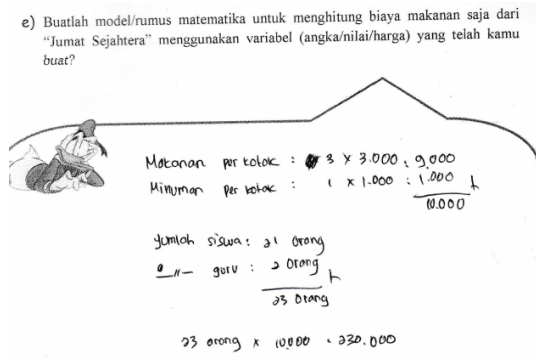 e) Buatlah model/rumus matematika untuk menghitung biaya makanan saja dari
“Jumat Sejahtera” menggunakan variabel (angka/nilai/harga) yang telah kamu
buat?
Makanan per kotak : 3 x 3.000 : 9.000
Minuman per kotak : 1 x 1.000 : 1.000 +
10.000
Jumlah siswa : 21 orang
—〃— guru : 2 orang +
23 orang
23 orang x 10.000 = 230.000